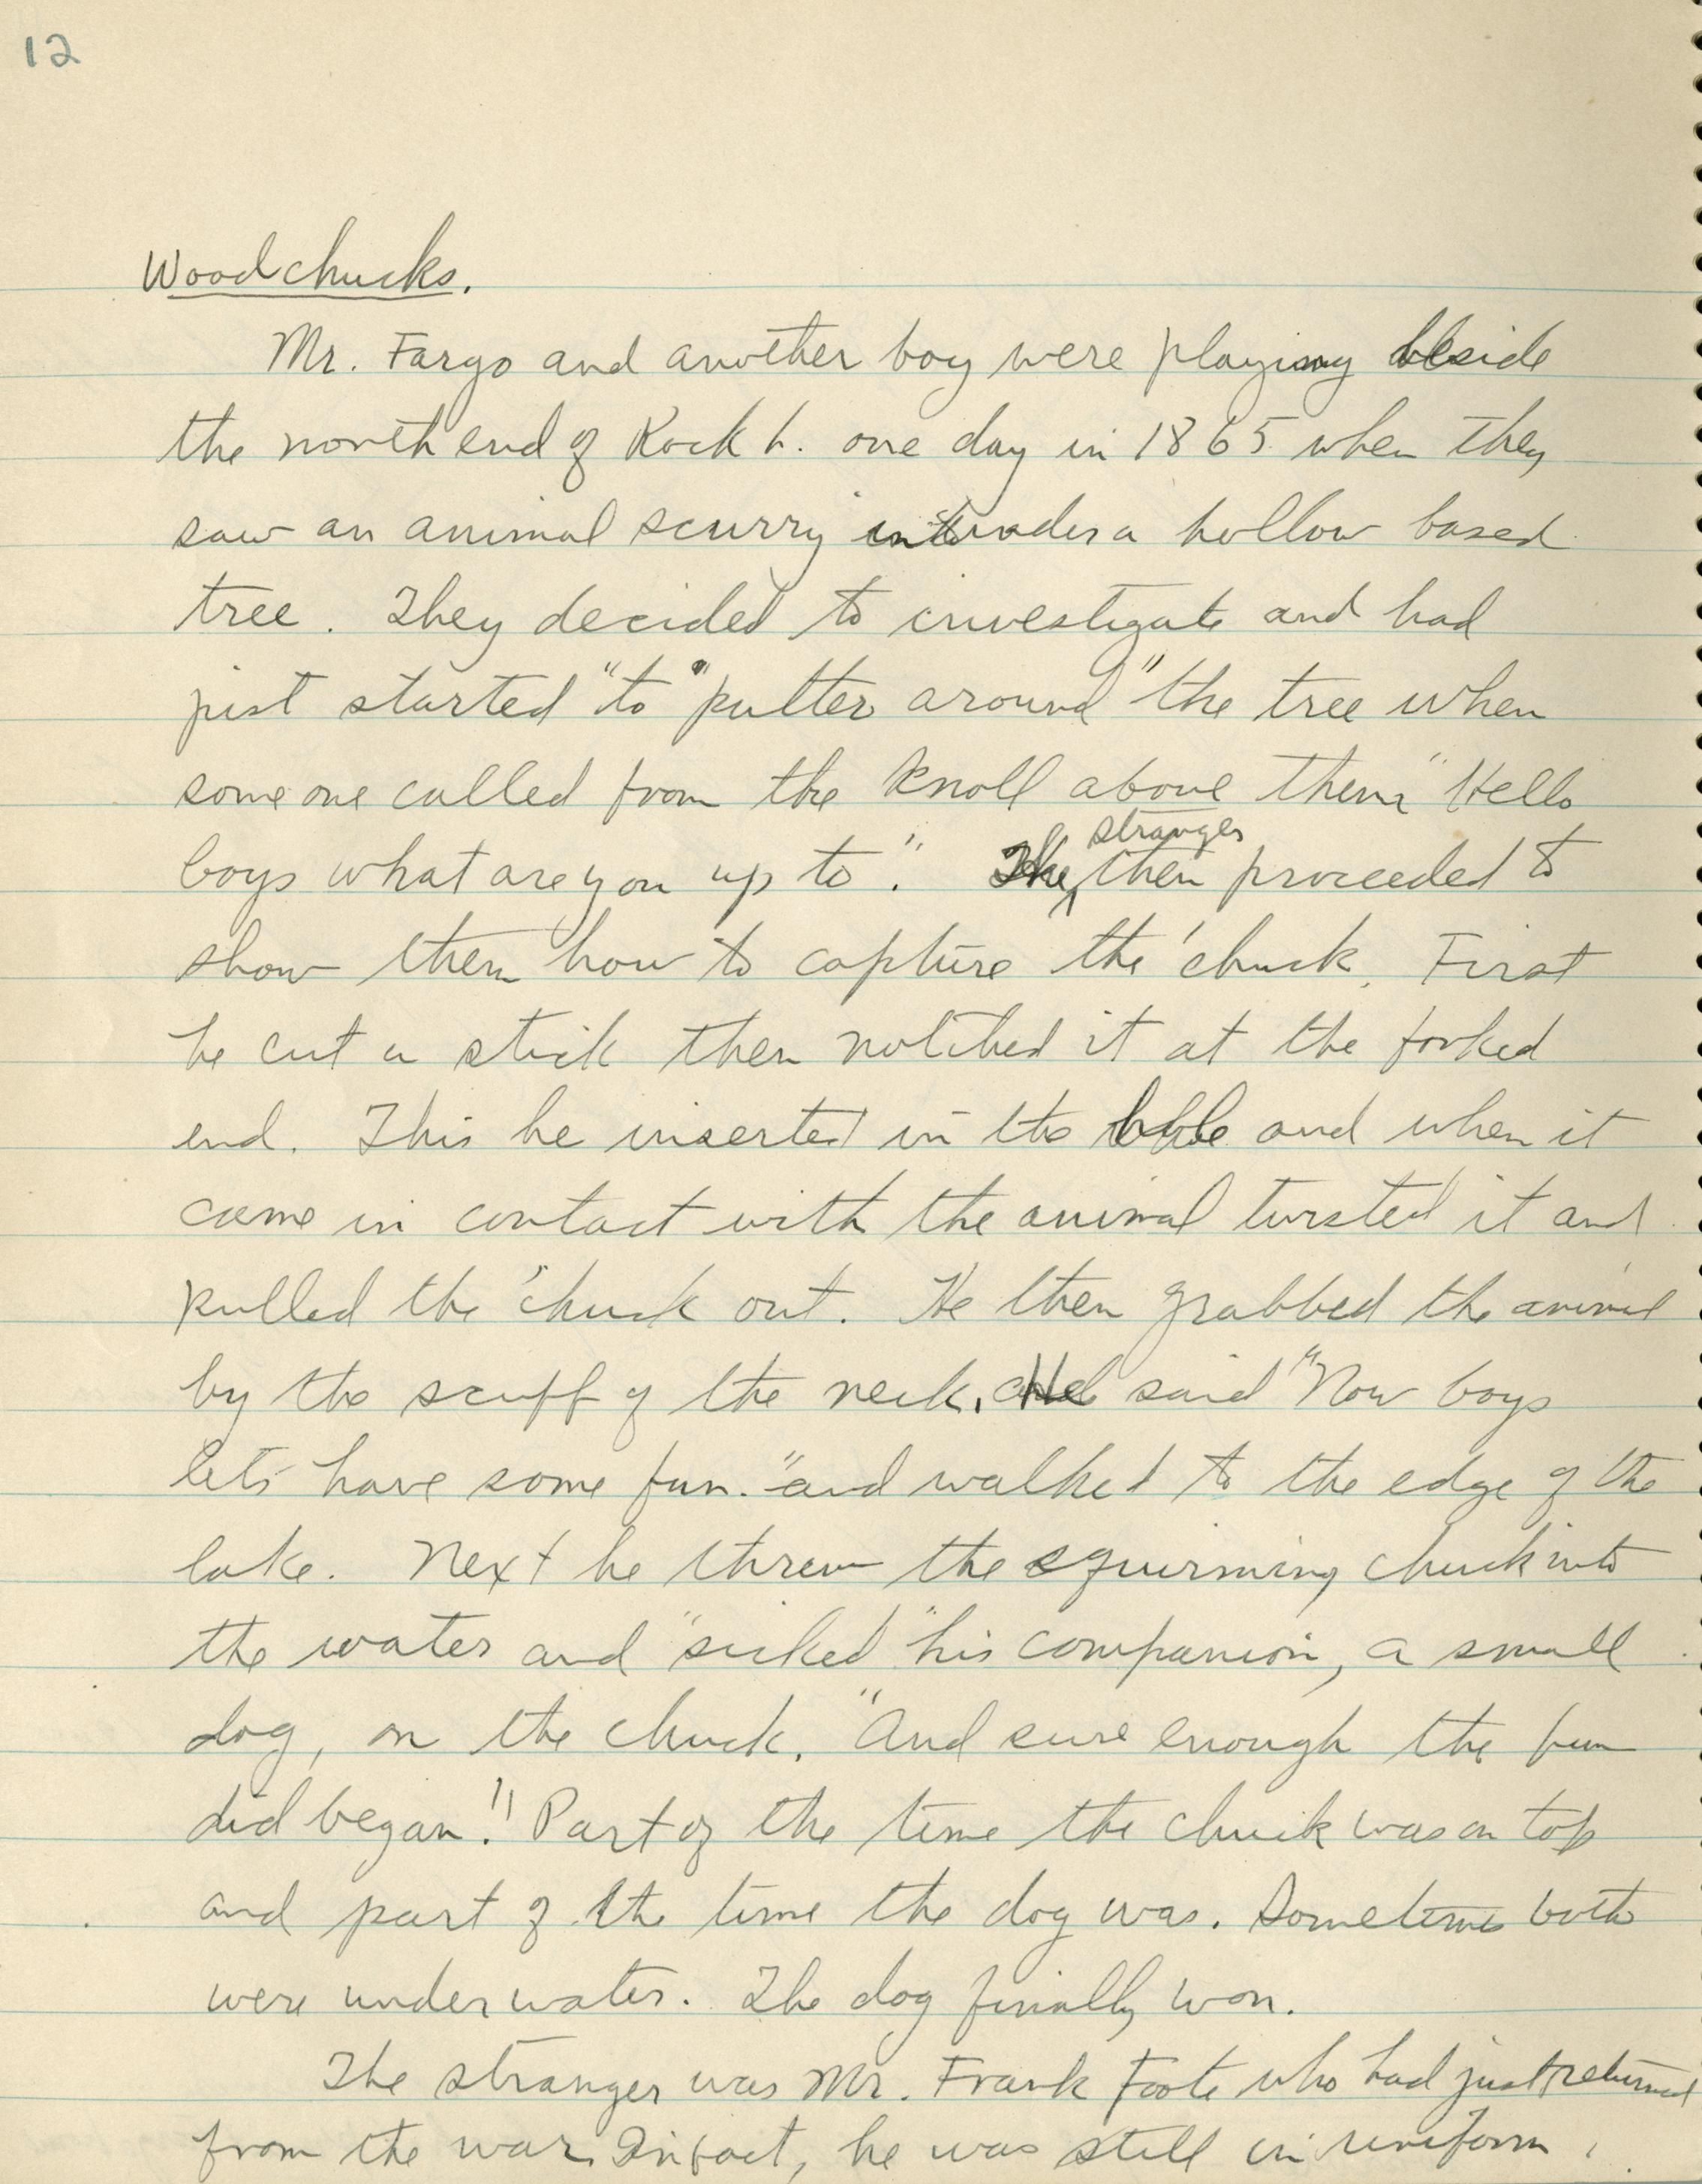 12
Woodchucks.
Mr. Fargo and another boy were playing beside
the north end of Rock L. one day in 1865 when they
saw an animal scurry under a hollow based
tree. They decided to investigate and had
just started "to "putter around" the tree when
some one called from the knoll above them "Hello
boys what are you up to". The stranger then proceeded to
show them how to capture the 'chuck. First
he cut a stick then notched it at the forked
end. This he inserted in the hole and when it
came in contact with the animal twisted it and
pulled the 'chuck out. He then grabbed the animal
by the scuff of the neck. He said "Now boys
lets have some fun." and walked to the edge of the
lake. Next he threw the squirming chuck into
the water and "sicked" his companion, a small
dog, on the chuck. "And sure enough the fun
did began!" Part of the time the chuck was on top
and part of the time the dog was. Sometimes both
were under water. The dog finally won.
The stranger was Mr. Frank Foote who had just returned
from the war. Infact, he was still in uniform.